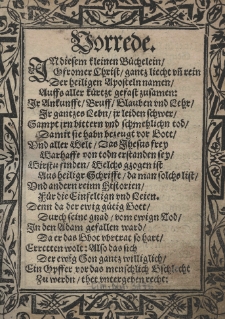 Vorrede.
IN diesem kleinen Büchelein/
O fromer Christ/ gantz liecht vñ rein
Der heiligen Aposteln namen/
Auffs aller kürtze gefast zusamen:
Ir Ankunfft/ Beruff/ Glauben vnd Lehr/
Ir gantzes Lebn/ jr leiden schwer/
Sampt jrn bittern vnd schmehlichn tod/
Damit sie habn bezeugt vor Gott/
Vnd aller Welt/ Das Jhesus frey
Warhafft von todn erstanden sey/
finden/ Welchs gzogen ist
Aus heiligr Schrifft/ da man solchs list/
Vnd andern reinn Historien/
Für die Einfeltign vnd Leien.
Denn da der ewig gütig Gott/
Durch seine gnad/ vom ewign Tod/
In den Adam gefallen ward/
Da er das Gbot vbtrat so hart/
Erretten wolt: Also das sich
Der ewig Son gantz williglich/
Ein Opffer vor das menschlich Gschlecht
Zu werdn/ thet vntergeben recht: